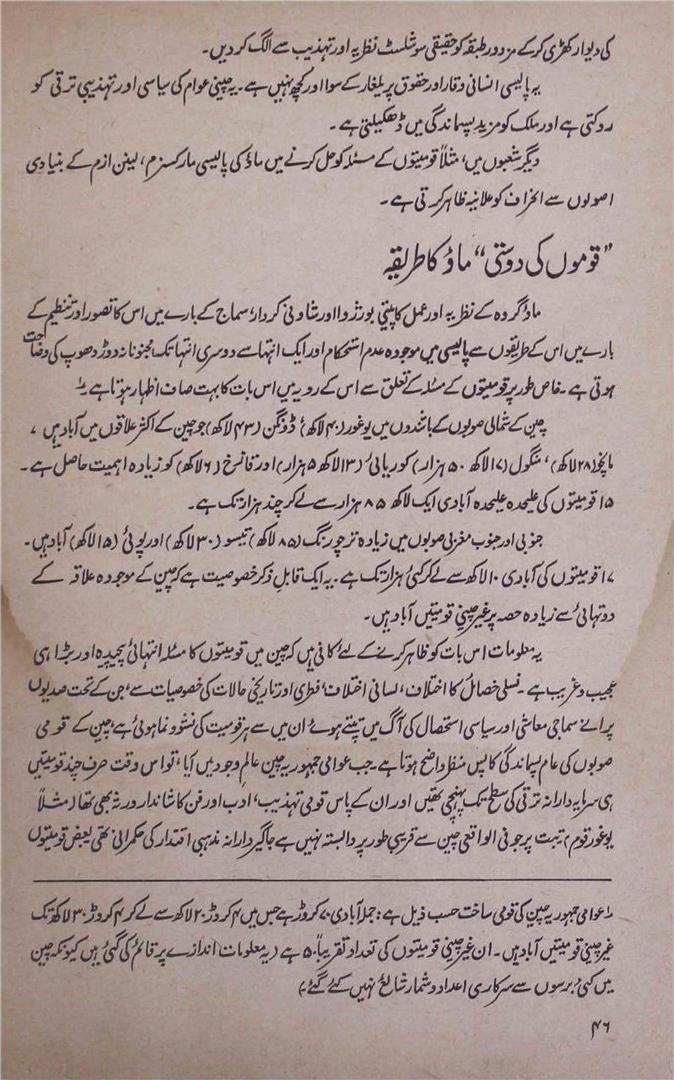 کی دیوار کھڑی کر کے مزدور طبقہ کو حقیقی سوشلسٹ نظریہ اور تہذیب سے الگ کر دیں۔
یہ پالیسی انسانی وقار اور حقوق پر یلغار کے سوا اور کچھ نہیں ہے۔ یہ چینی عوام کی سیاسی اور تہذیبی ترقی کو
روکتی ہے اور ملک کو مزید پسماندگی میں ڈھکیلتی ہے۔
دیگر شعبوں میں، مثلاً قومیتوں کے مسئلہ کو حل کرنے میں ماؤ کی پالیسی مارکسزم، لینن ازم کے بنیادی
اصولوں سے انحراف کو علانیہ ظاہر کرتی ہے۔
”قوموں کی دوستی“ ماؤ کا طریقہ
ماؤ گروہ کے نظریہ اور عمل کا پیٹی بورژوا اور شاونی کردار، سماج کے بارے میں اس کا تصور اور تنظیم کے
بارے میں اس کے طریقوں سے پالیسی میں موجودہ عدم استحکام اور ایک انتہا سے دوسری انتہا تک مجنونانہ دوڑ دھوپ کی وضاحت
ہوتی ہے۔ خاص طور پر قومیتوں کے مسئلہ کے تعلق سے اس کے رویہ میں اس بات کا بہت صاف اظہار ہوتا ہے۔ ۱؎
چین کے شمالی صوبوں کے باشندوں میں یوغور (۴۰ لاکھ) ڈونگن (۴۳ لاکھ) جو چین کے اکثر علاقوں میں آباد ہیں،
مانچو (۲۸ لاکھ)، منگول (۱۷ لاکھ ۵۰ ہزار) کوریائی (۱۳ لاکھ ۵ ہزار) اور قازخ (۶ لاکھ) کو زیادہ اہمیت حاصل ہے۔
۱۵ قومیتوں کی علیحدہ علیحدہ آبادی ایک لاکھ ۸۵ ہزار سے لے کر چند ہزار تک ہے۔
جنوبی اور جنوب مغربی صوبوں میں زیادہ تر چورنگ (۸۵ لاکھ) تیسو (۳۰ لاکھ) اور پوئی (۱۵ لاکھ) آباد ہیں۔
۱۷ قومیتوں کی آبادی ۱۰ لاکھ سے لے کر کئی ہزار تک ہے۔ یہ ایک قابل ذکر خصوصیت ہے کہ چین کے موجودہ علاقہ کے
دو تہائی سے زیادہ حصہ پر غیر چینی قومیتیں آباد ہیں۔
یہ معلومات اس بات کو ظاہر کرنے کے لئے کافی ہیں کہ چین میں قومیتوں کا مسئلہ انتہائی پیچیدہ اور بڑا ہی
عجیب و غریب ہے۔ نسلی خصائل کا اختلاف، لسانی اختلاف، فطری اور تاریخی حالات کی خصوصیات سے، جن کے تحت صدیوں
پرانے سماجی معاشی اور سیاسی استحصال کی آگ میں تپتے ہوئے ان میں سے ہر قومیت کی نشوونما ہوئی ہے، چین کے قومی
صوبوں کی عام پسماندگی کا پس منظر واضح ہوتا ہے۔ جب عوامی جمہوریہ چین عالم وجود میں آیا، تو اس وقت صرف چند قومیتیں
ہی سرمایہ دارانہ ترقی کی سطح تک پہنچی تھیں اور ان کے پاس قومی تہذیب، ادب اور فن کا شاندار ورثہ بھی تھا (مثلاً
یوغور قوم) تبت پر جو فی الواقعی چین سے قریبی طور پر وابستہ نہیں ہے جاگیردارانہ مذہبی اقتدار کی حکمرانی تھی بعض قومیتوں
۱؎ عوامی جمہوریہ چین کی قومی ساخت حسب ذیل ہے: جملہ آبادی ۷۰ کروڑ ہے جس میں ۴ کروڑ ۲۰ لاکھ سے لے کر ۴ کروڑ ۳۰ لاکھ تک
غیر چینی قومیتیں آباد ہیں۔ ان غیر چینی قومیتوں کی تعداد تقریباً ۵۰ ہے (یہ معلومات اندازے پر قائم کی گئی ہیں کیونکہ چین
میں کئی برسوں سے سرکاری اعداد و شمار شائع نہیں کئے گئے)
۴۶